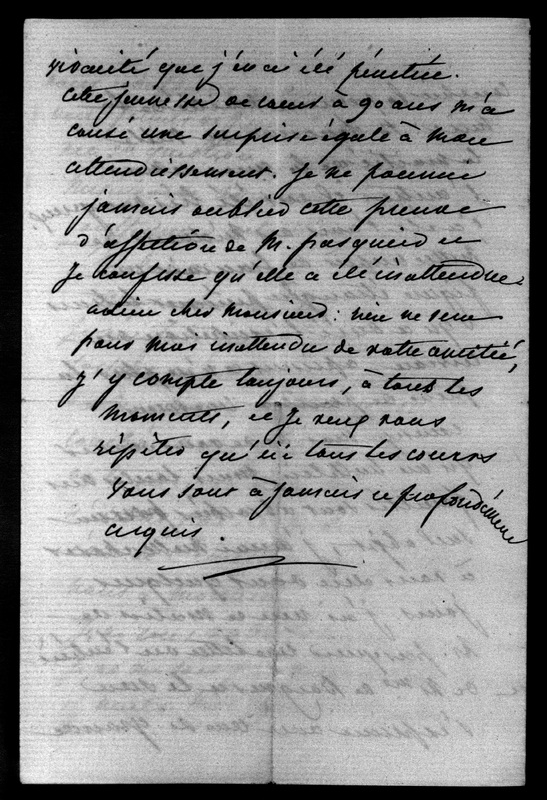 vivacité que j'en ai été pénétrée.
cette jeunesse de cœur à 90 ans m'a
causé une surprise égale à mon
attendrissement. Je ne pourrai
jamais oublier cette preuve
d'affection de M. pasquier et
Je confesse qu'elle a été inattendue.
adieu cher monsieur : rien ne sera
pour moi inattendu de votre amitié,
j'y compte toujours, à tous les
moments, et Je veux vous
répéter qu'ici tous les cœurs
vous sont à Jamais et profondément
acquis.